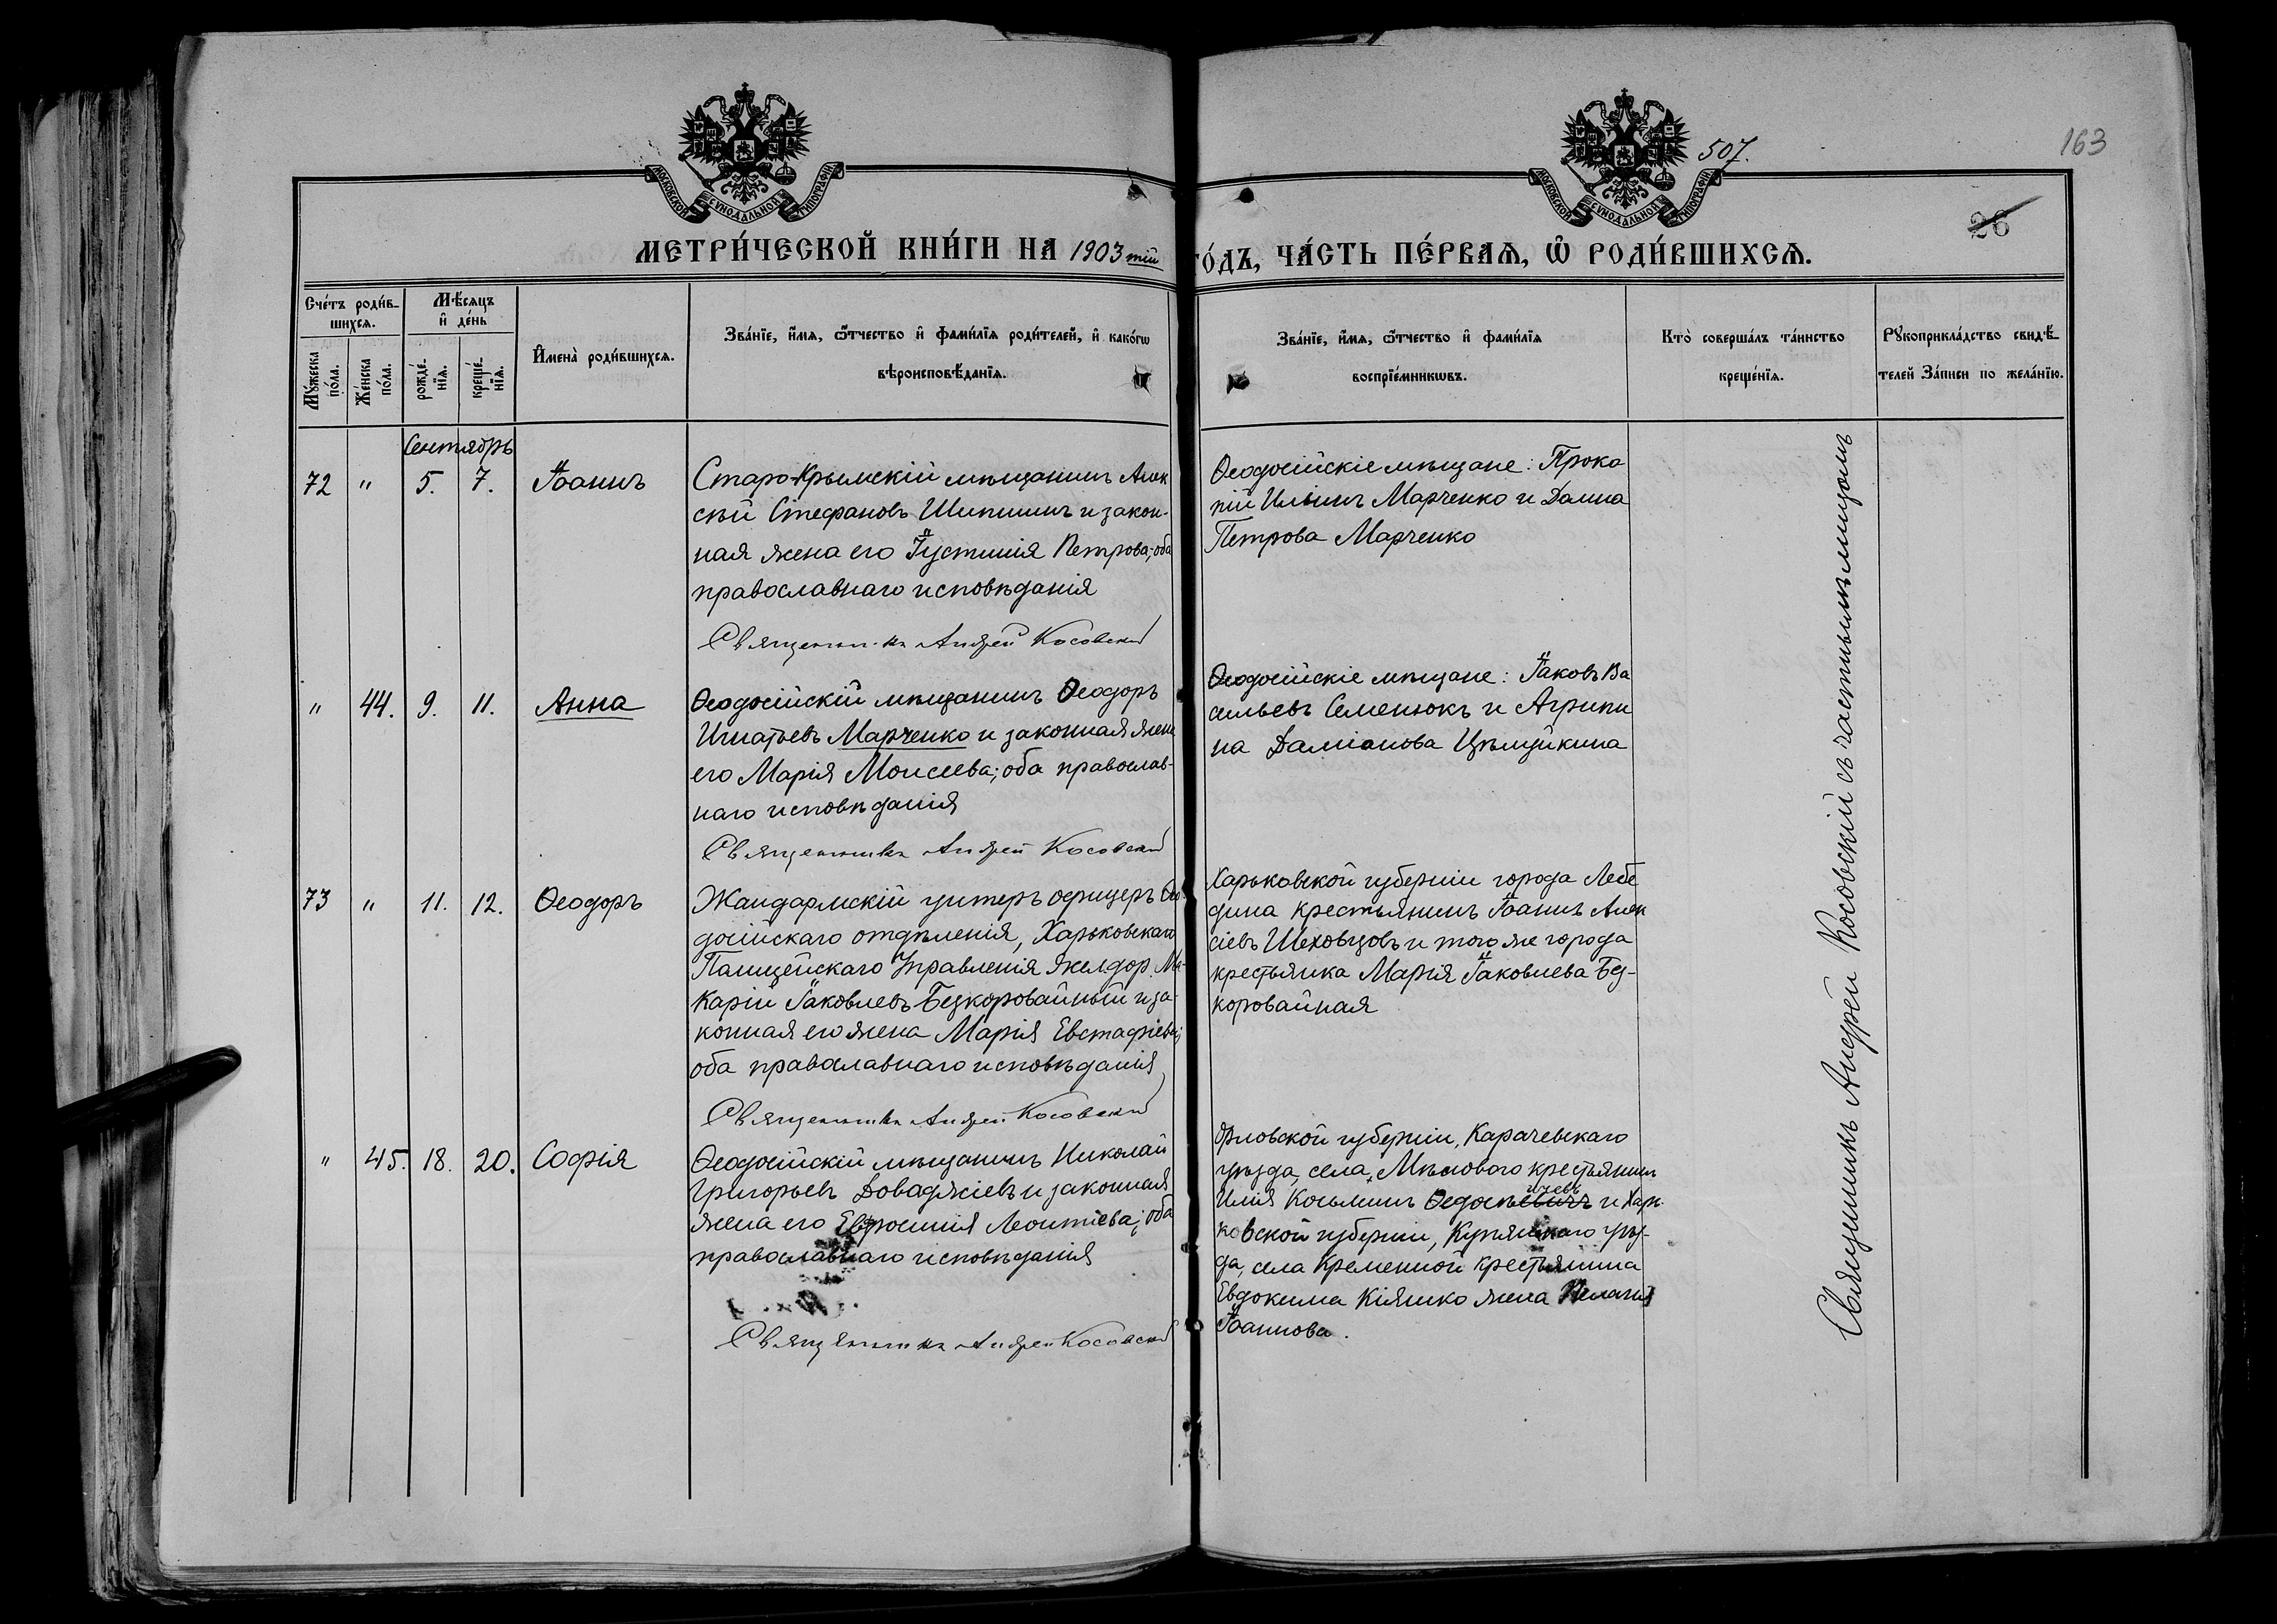 507.
163
26
МОСКОВСКОЙ СѴНОДАЛЬНОЙ ТИПОГРАФІИ
МОСКОВСКОЙ СѴНОДАЛЬНОЙ ТИПОГРАФІИ
МЕТРИ́ЧЕСКОЙ КНИ́ГИ НА 1903 тій
ГО́ДЪ, ЧА́СТЬ ПЕ́РВАЯ, Ѽ РОДИ́ВШИХСЯ.
Сче́тъ роди́в-
шихся.
Му́жеска
по́ла.
Же́нска
по́ла.
Мѣ́сяцъ
и҆ де́нь
рожде́-
нїя.
креще́-
нїя.
И҆мена̀ роди́вшихся.
Зва́нїе, и҆́мя, ѻ҆́тчество и҆ фами́лїя роди́телей, и҆ како́гѡ
вѣроисповѣ́данїя.
Зва́нїе, и҆́мя, ѻ҆́тчество и҆ фами́лїя
воспрїе́мникѡвъ.
Кто̀ соверша́лъ та́инство
креще́нїя.
Рꙋкоприкла́дство свидѣ́-
телей За́писи по жела́нїю.
Сентябрь
72 " 5. 7. Іоаннъ
Старо-Крымскій мѣщанинъ Алек
сѣй Стефановъ Шипилинъ и закон-
ная жена его Іустинія Петрова; оба
православнаго исповѣданія
Священникъ Андрей Косовский
Ѳеодосійскіе мѣщане: Проко
пій Ильинъ Марченко и Домна
Петрова Марченко
" 44. 9. 11. Анна
Ѳеодосійскій мѣщанинъ Ѳеодоръ
Игнатьевъ Марченко и законная жена
его Марія Моисеева; оба православ-
наго исповѣданія
Священникъ Андрей Косовский
Ѳеодосійскіе мѣщане: Іаковъ Ва
сильевъ Семенюкъ и Агрипи
на Даміанова
73 " 11. 12. Ѳеодоръ
Жандармскій унтеръ офицеръ Ѳео-
досійскаго отдѣленія, Харьковскаго
Полицейскаго Управленія жел. дор. Ма-
карій Іаковлевъ Безкоровайный и за-
конная его жена Марія Евстафіева;
оба православнаго исповѣданія
Священникъ Андрей Косовский
Харьковской губерніи города Лебе
дина крестьянинъ Іоаннъ Алек
сіевъ Шеховцовъ и того же города
крестьянка Марія Іаковлева Без-
коровайная
" 45. 18. 20. Софія
Ѳеодосійскій мѣщанинъ Николай
Григорьевъ Доваджіевъ и законная
жена его Евфросинія Леонтіева; оба
православнаго исповѣданія
Священникъ Андрей Косовский
Орловской губерніи, Карачевскаго
уѣзда, села крестьянинъ
Илія Косьминъ и Харь-
ковской губерніи, Купянскаго уѣз-
да, села Кременной крестьянина
Евдокима Кіяшко жена Пелагія
Іоаннова.
Священникъ Андрей Косовскій съ